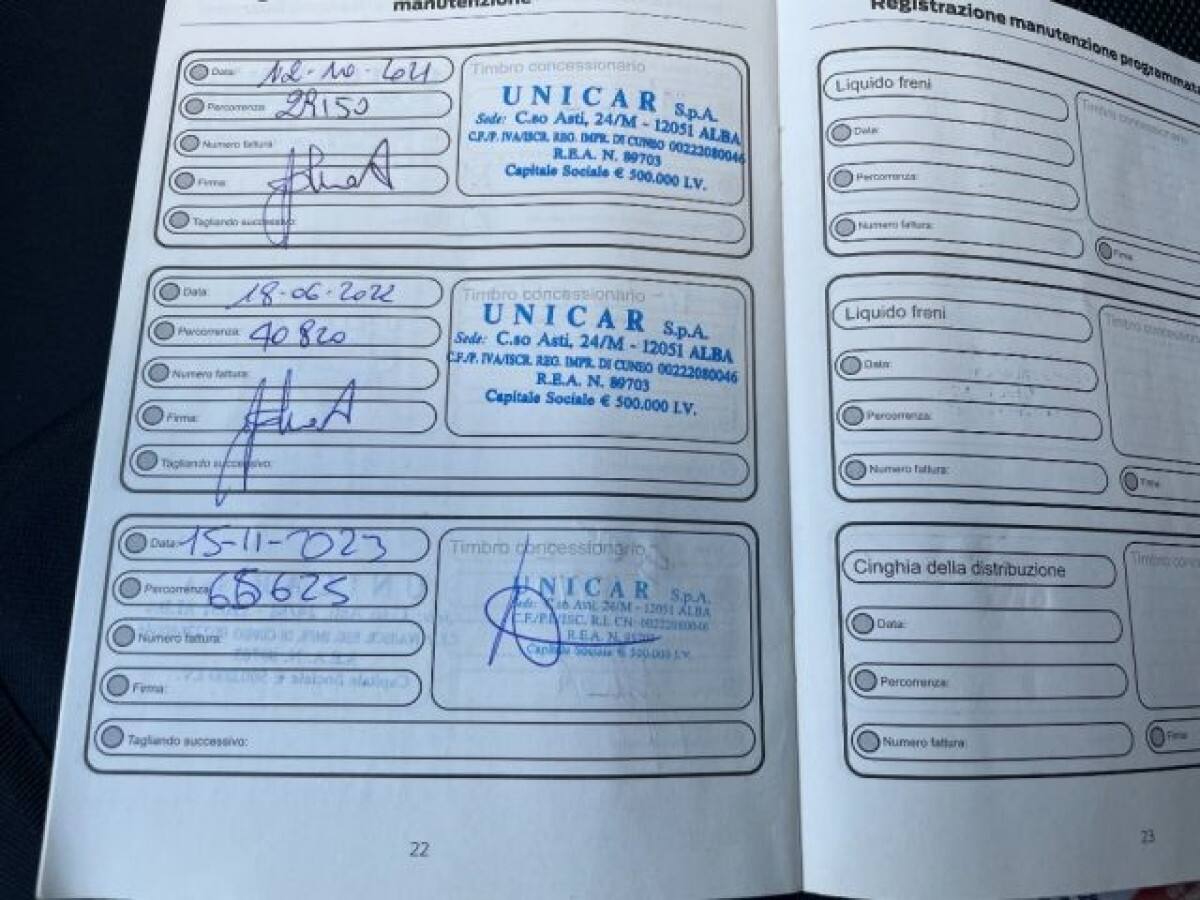 manutenzione
Data: 12-10-2021
Percorrenza:
Numero fattura:
Firma:
Tagliando successivo:
Timbro concessionario
UNICAR S.p.A.
Sede: C.so Asti, 24/M - 12051 ALBA
C.F./P. IVA/ISCR. REG. IMPR. DI CUNEO 00222080046
R.E.A. N. 89703
Capitale Sociale € 500.000 I.V.
Data: 18-06-2022
Percorrenza: 40820
Numero fattura:
Firma:
Tagliando successivo:
Timbro concessionario
UNICAR S.p.A.
Sede: C.so Asti, 24/M - 12051 ALBA
C.F./P. IVA/ISCR. REG. IMPR. DI CUNEO 00222080046
R.E.A. N. 89703
Capitale Sociale € 500.000 I.V.
Data: 15-11-2023
Percorrenza: 65625
Numero fattura:
Firma:
Tagliando successivo:
Timbro concessionario
UNICAR S.p.A.
Sede: C.so Asti, 24/M - 12051 ALBA
R.I. CN 00222080046
R.E.A. N.
Capitale Sociale € 500.000 I.V.
22
Registrazione manutenzione programmata
Liquido freni
Data:
Percorrenza:
Numero fattura:
Timbro concessionario
Firma
Liquido freni
Data:
Percorrenza:
Numero fattura:
Timbro concessionario
Firma
Cinghia della distribuzione
Data:
Percorrenza:
Numero fattura:
Timbro
Firma
23